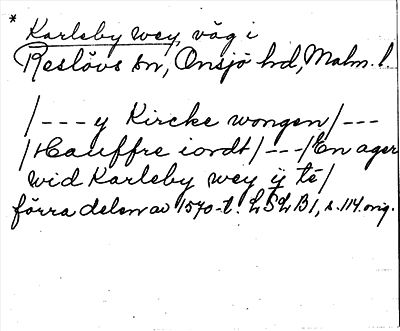 * Karleby wey, väg i
Reslövs sn, Onsjö hd, Malm. l.
/--- y Kircke wongen/---
/Hauffre iordt/---/En ager
wid Karleby wey ij té/
förra delen av 1570-t. LSLB1, s. 114. orig.